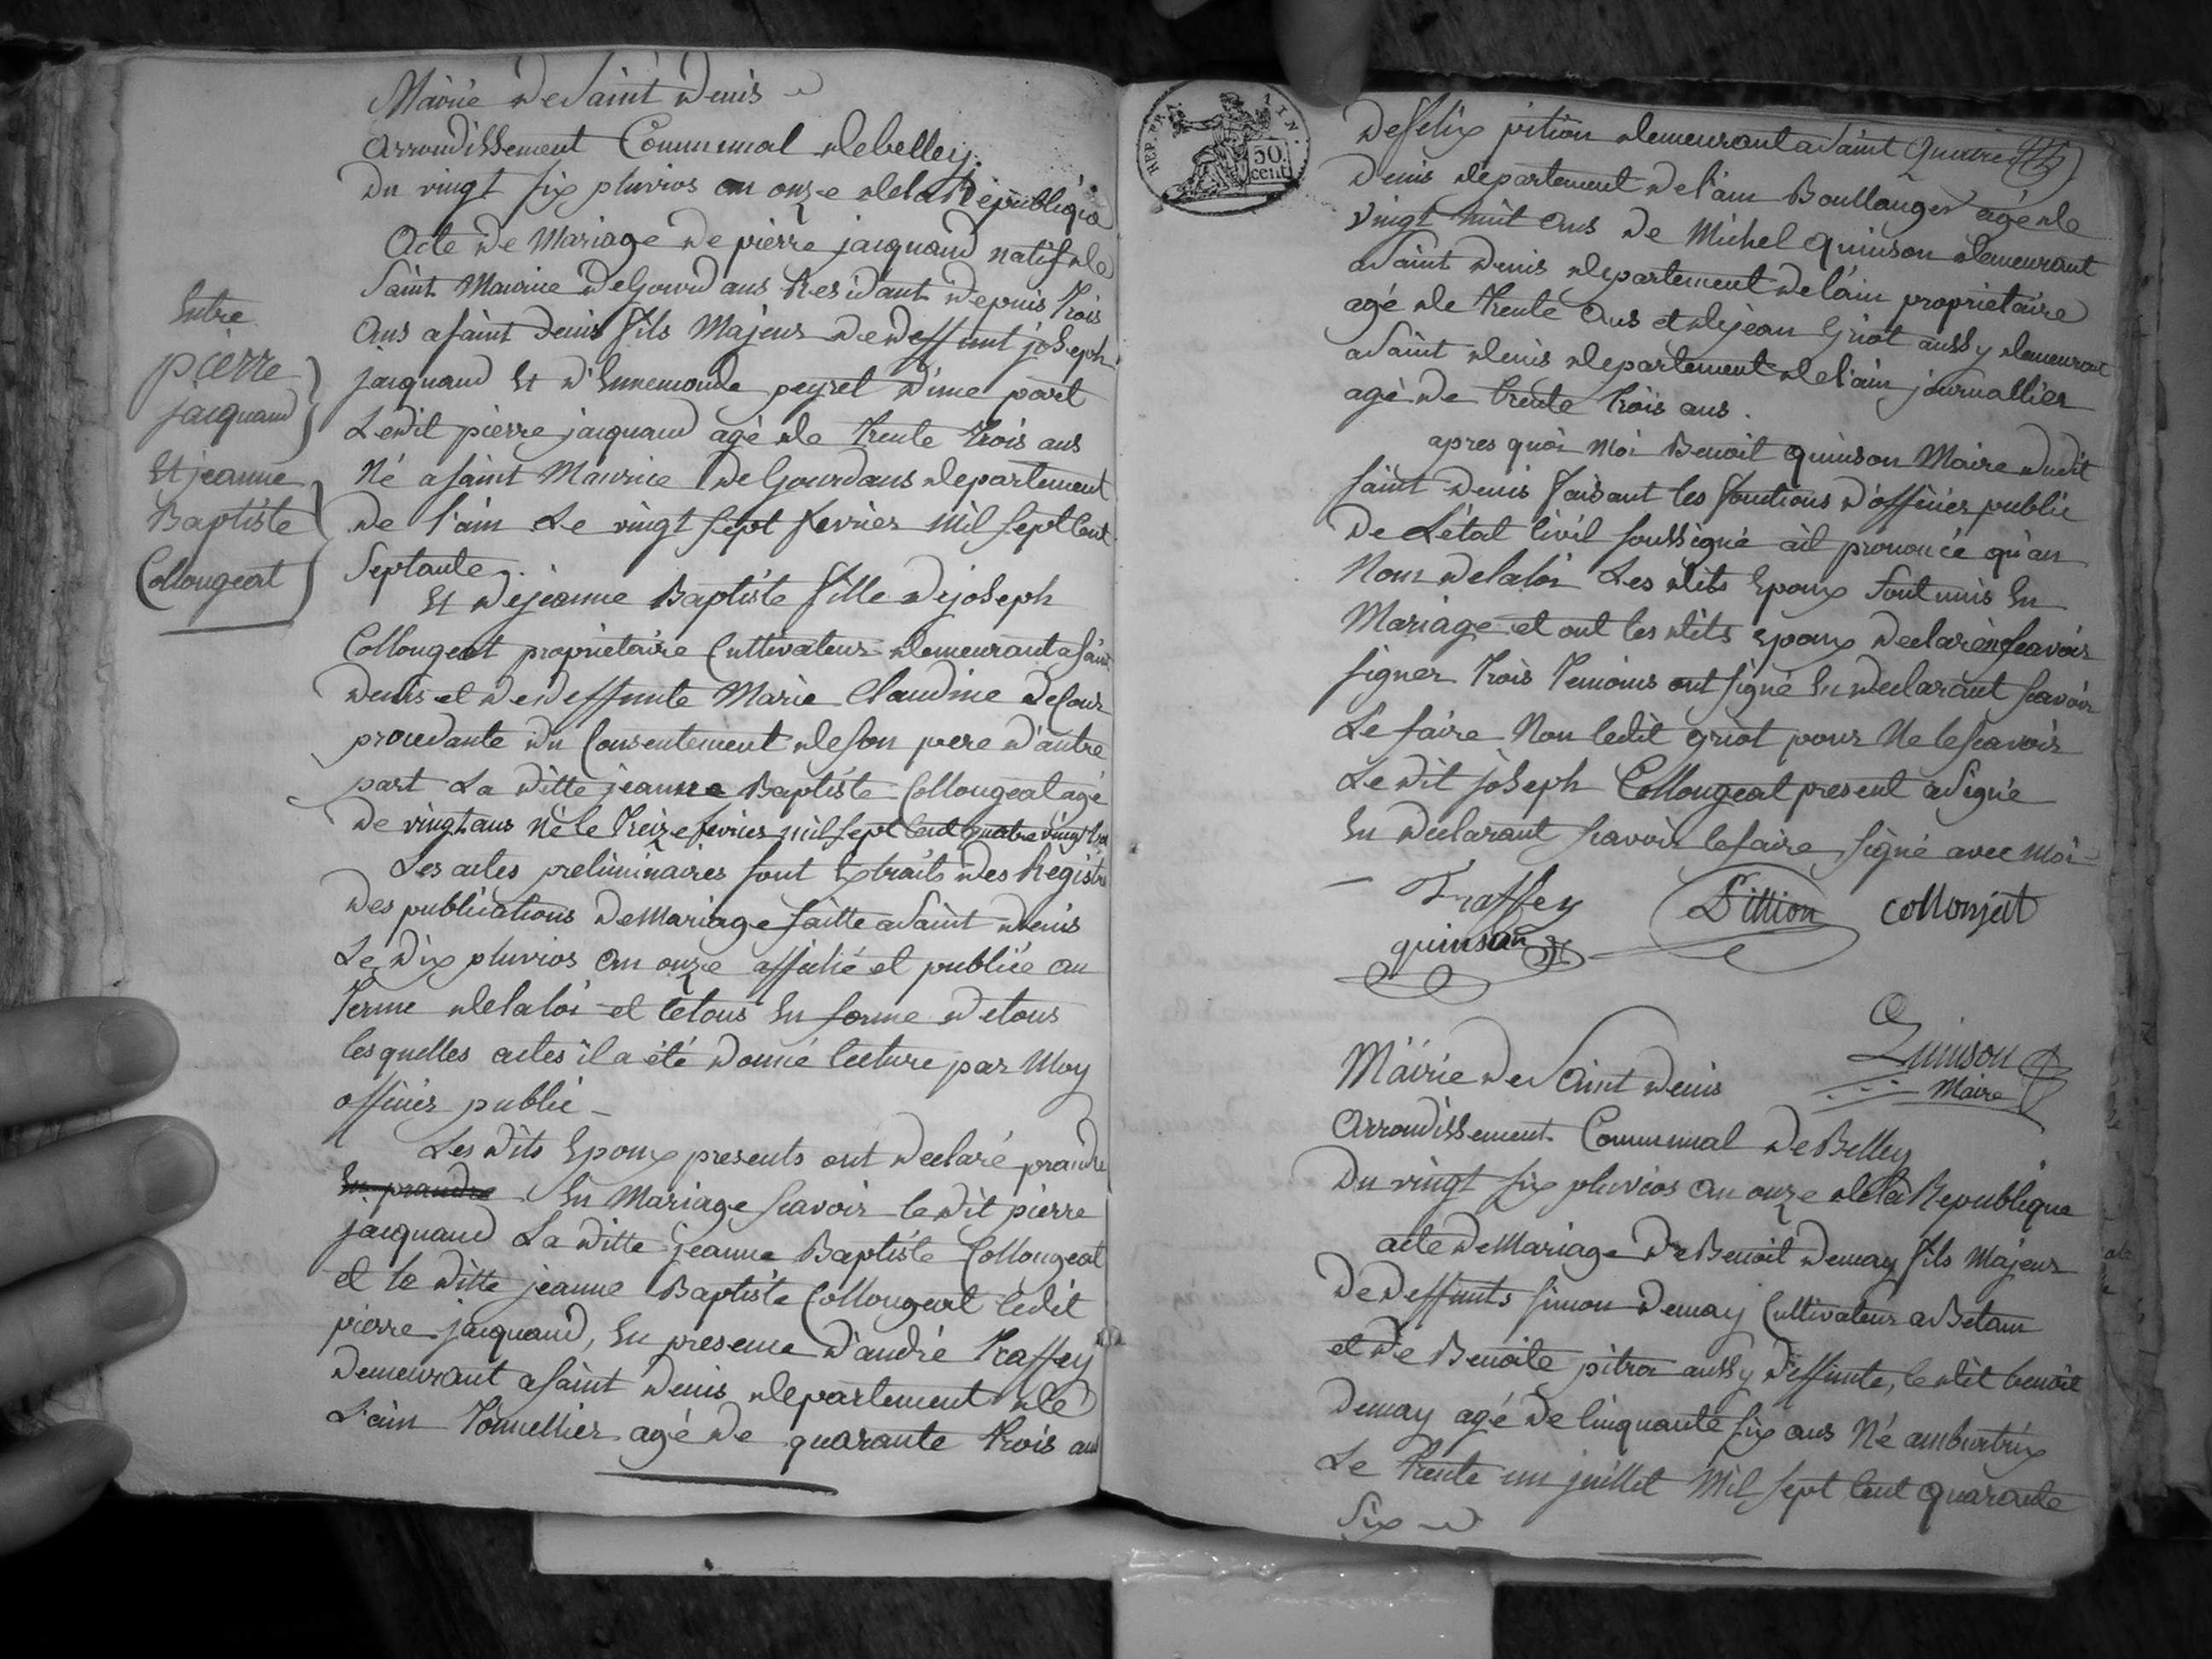 Mairie de Saint Denis
Arrondissement Communal de belley.
du vingt six pluvios an onze de la Republique
Acte de Mariage de pierre jacquand natif de
Saint Maurice de Gourdans Residant depuis trois
ans a saint Denis fils Majeur de deffunt joseph
jacquand Et d'Ennemonde peyret d'une part
Ledit pierre jacquand agé de trente trois ans
Né a saint Maurice de Gourdans departement
de l'ain Le vingt sept fevrier mil sept Cent
Septante.
Entre
pierre
jacquand
Et jeanne
Baptiste
Collongeat
Et de jeanne Baptiste fille de joseph
Collongeat proprietaire Cultivateur demeurant a saint
denis et de deffunte Marie Claudine
procedante du Consentement de son pere d'autre
part La ditte jeanne Baptiste Collongeat agé
de vingt ans Né le treize fevrier mil sept Cent quatre vingt
Les actes preliminaires sont Extraits des Registre
des publications de Mariage faitte a Saint denis
Le dix pluvios an onze affiché et publiée au
terme de la loi et le tous En forme de tous
lesquelles actes il a été donné lecture par Moy
officier public
Les dits Epoux presents ont declaré prandre
En Mariage scavoir le dit pierre
jacquand La ditte jeanne Baptiste Collongeat
et la ditte jeanne Baptiste Collongeat ledit
pierre jacquand, En presence d'andré traffey
demeurant a saint Denis departement de
L'ain tonnellier agé de quarante trois ans
REP. FRA. AIN.
50
cent
de felix pition demeurant a Saint
Denis departement de l'ain Boullanger agé de
vingt huit ans de Michel Quinson demeurant
a Saint Denis departement de l'ain proprietaire
agé de trente ans et de jean Griot aussy demeurant
a Saint Denis departement de l'ain journallier
agé de trente trois ans.
apres quoi Moi Benoit Quinson Maire dudit
saint Denis faisant les fonctions d'officier public
de L'état Civil soussigné ail prononcé qu'au
Nom de la loi Les dits Epoux sont unis En
Mariage et ont les dits Epoux declaré scavoir
signer trois temoins ont signé En declarant scavoir
Le faire Non ledit griot pour Ne le scavoir
Le dit joseph Collongeat present a Signé
En declarant scavoir le faire, signé avec Moi
Traffey Pittion collonjat
quinson
Quinson
Maire
Mairie de Saint Denis
Arrondissement Communal de Belley
Du vingt six pluvios an onze de la Republique
acte de Mariage de Benoit Demay fils Majeur
de deffunts simon Demay Cultivateur a Betam
et de Benoite pitra aussy deffunte, ledit benoit
Demay agé de Cinquante six ans Né amburtrix
Le trente un juillet Mil sept Cent quarante
Six